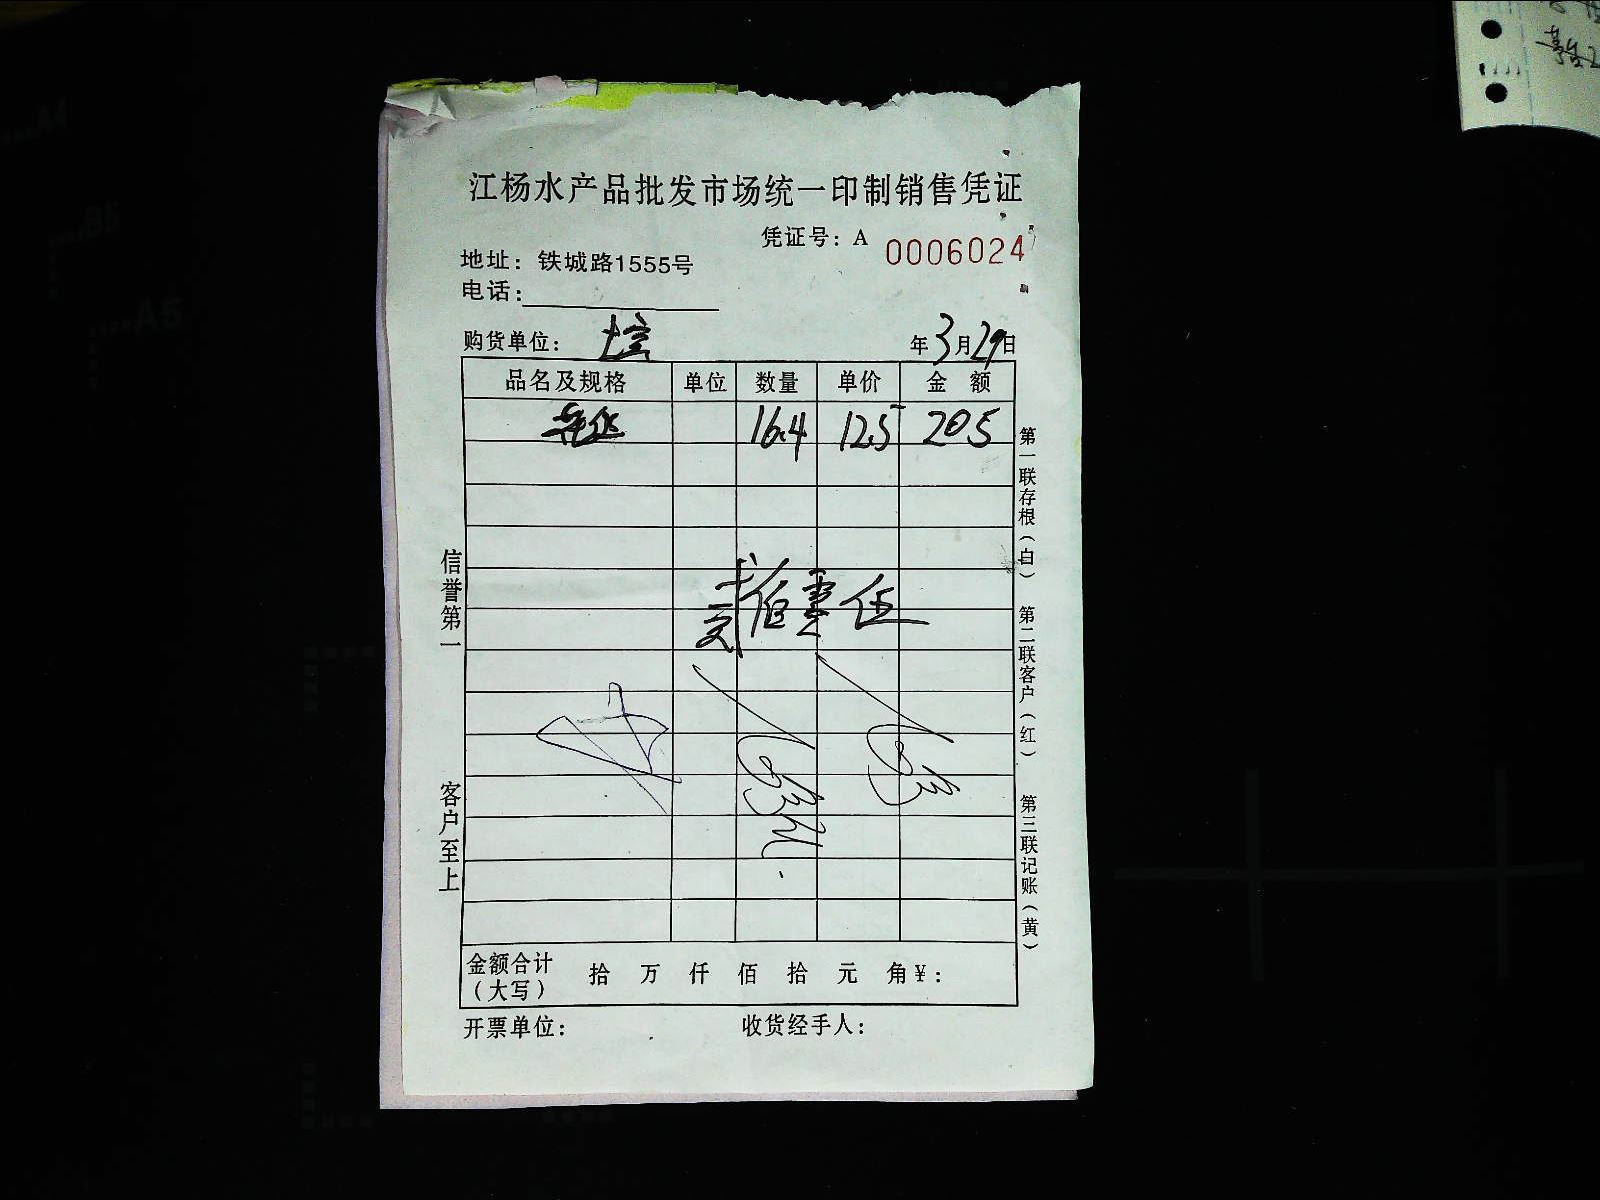 江杨水产品批发市场统一印制销售凭证
凭证号：A 0006024
地址：铁城路1555号
电话：
购货单位：
年3月29日
品名及规格 单位 数量 单价 金 额
16.4 12.5 205
信誉第一
客户至上
第一联存根（白） 第二联客户（红） 第三联记账（黄）
金额合计（大写） 拾 万 仟 佰 拾 元 角¥：
开票单位： 收货经手人：